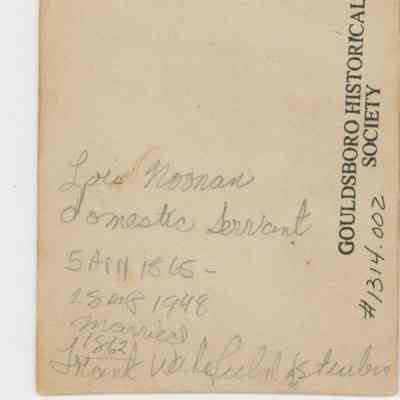 Lois Noonan
domestic Servant
5 April 1865 -
2 Sep 1948
married
1862
Frank Wakefield of Steuben
GOULDSBORO HISTORICAL
SOCIETY
#1314.002